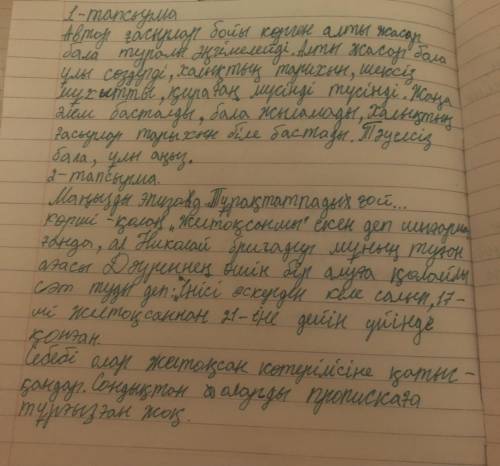 1-тапсырма
Автор ғасырлар бойы көрген алты жасар
бала туралы әңгімелейді. Алты жасар бала
ұлы сөздерді, халықтың тарихын, шексіз
мұхитты, қираған мүсінді түсінді. Жаңа
әлем басталды, бала жыламады, Халықтың
ғасырлар тарыхын біле бастады. Тәуелсіз
бала, ұлы аңыз.
2-тапсырма.
Маңызды эпизод. Тұрақтатпадық ғой...
көрші-қолаң „желтоқсаншы" екен деп шығарып
ғанда, ал Николай бригадир мұның туған
ағасы Дәуреннең өшін бір алуға қолайлы
сәт туды деп: Інісі әскерден келе салып, 17-
ші желтоқсаннан 21-іне дейін үйінде
қонған.
Себебі олар желтоқсан көтерілісіне қатыс-
қандар. Сондықтан оларды прописказа
тұрғызған жоқ.